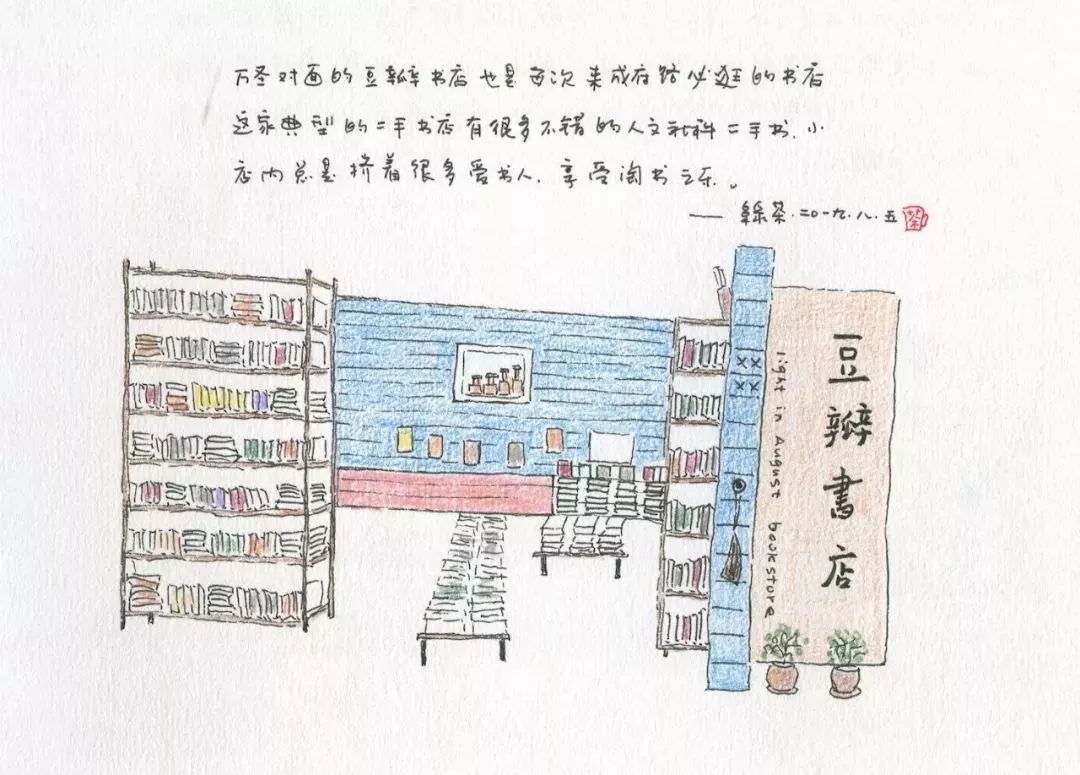 万圣对面的豆瓣书店也是每次来成府路必逛的书店
这家典型的二手书店有很多不错的人文社科二手书.小
店内总是挤着很多爱书人.享受淘书之乐。
—— 绿茶.二〇一九.八.五
茶
豆瓣書店
light in August bookstore